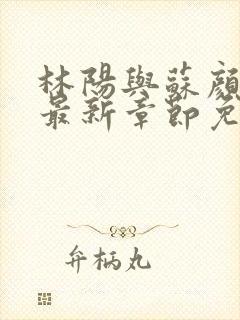 林陽與蘇顏
最新章節免
弁柄丸